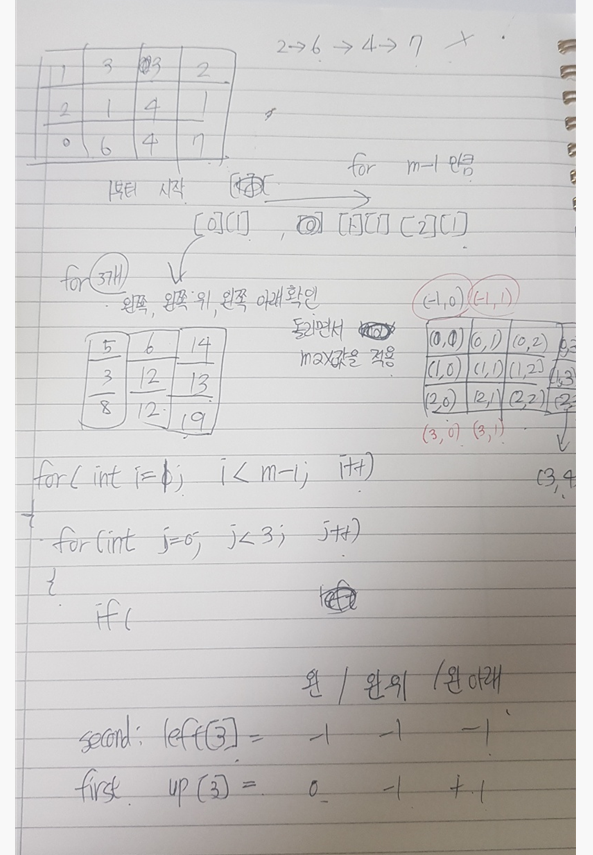 2→6→4→7 X
1 3 3 2
2 1 4 1
0 6 4 7
for m-1 만큼
1부터 시작
[0][1], [1][1] [2][1]
for 3개
왼쪽, 왼쪽 위, 왼쪽 아래 확인
돌리면서
max값을 적용
(-1,0) (-1,1)
5 6 14
3 12 13
8 12 19
(0,0) (0,1) (0,2)
(1,0) (1,1) (1,2)
(2,0) (2,1) (2,2)
(3,0) (3,1)
(3,4
for( int i=1; i<m-1; i++)
{
for(int j=0; j<3; j++)
{
if(
왼 / 왼위 / 왼아래
second: left[3] = -1 -1 -1
first up[3] = 0 -1 +1